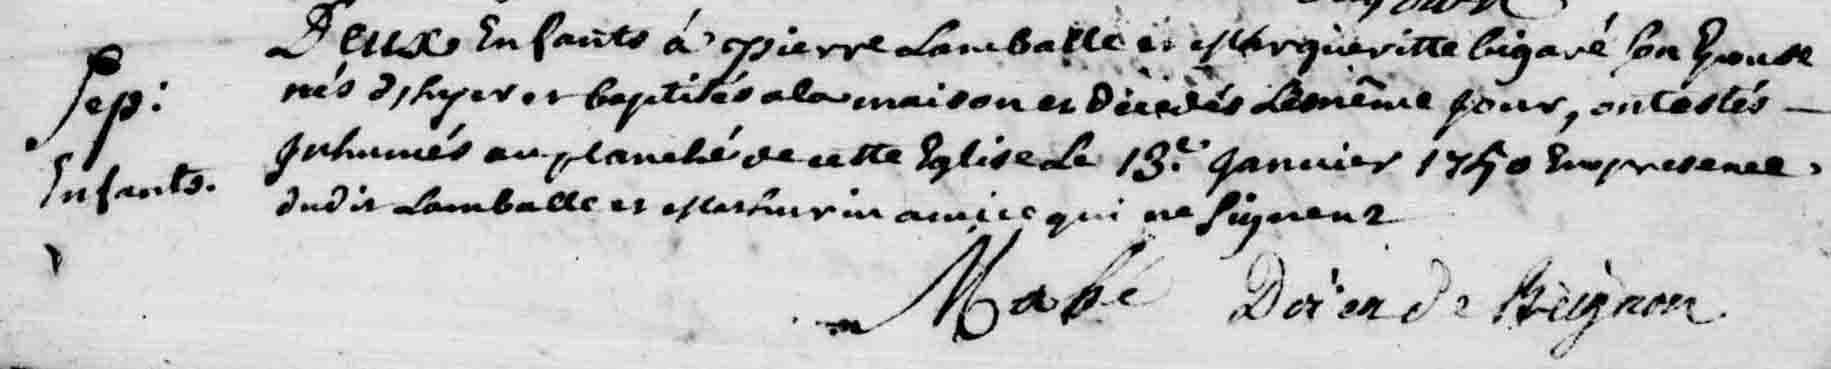 Deux Enfants á pierre Lamballe et Margueritte bigaré son Epouse
Sep:
nés d'hyer et baptisés a la maison et décédés Le même jour, ont estés
Inhumés au planché de cette Eglise Le 13.e Janvier 1750 En presence
Enfants.
dudit Lamballe et Mathurin amice qui ne signent
Mahé Doien de Beignon